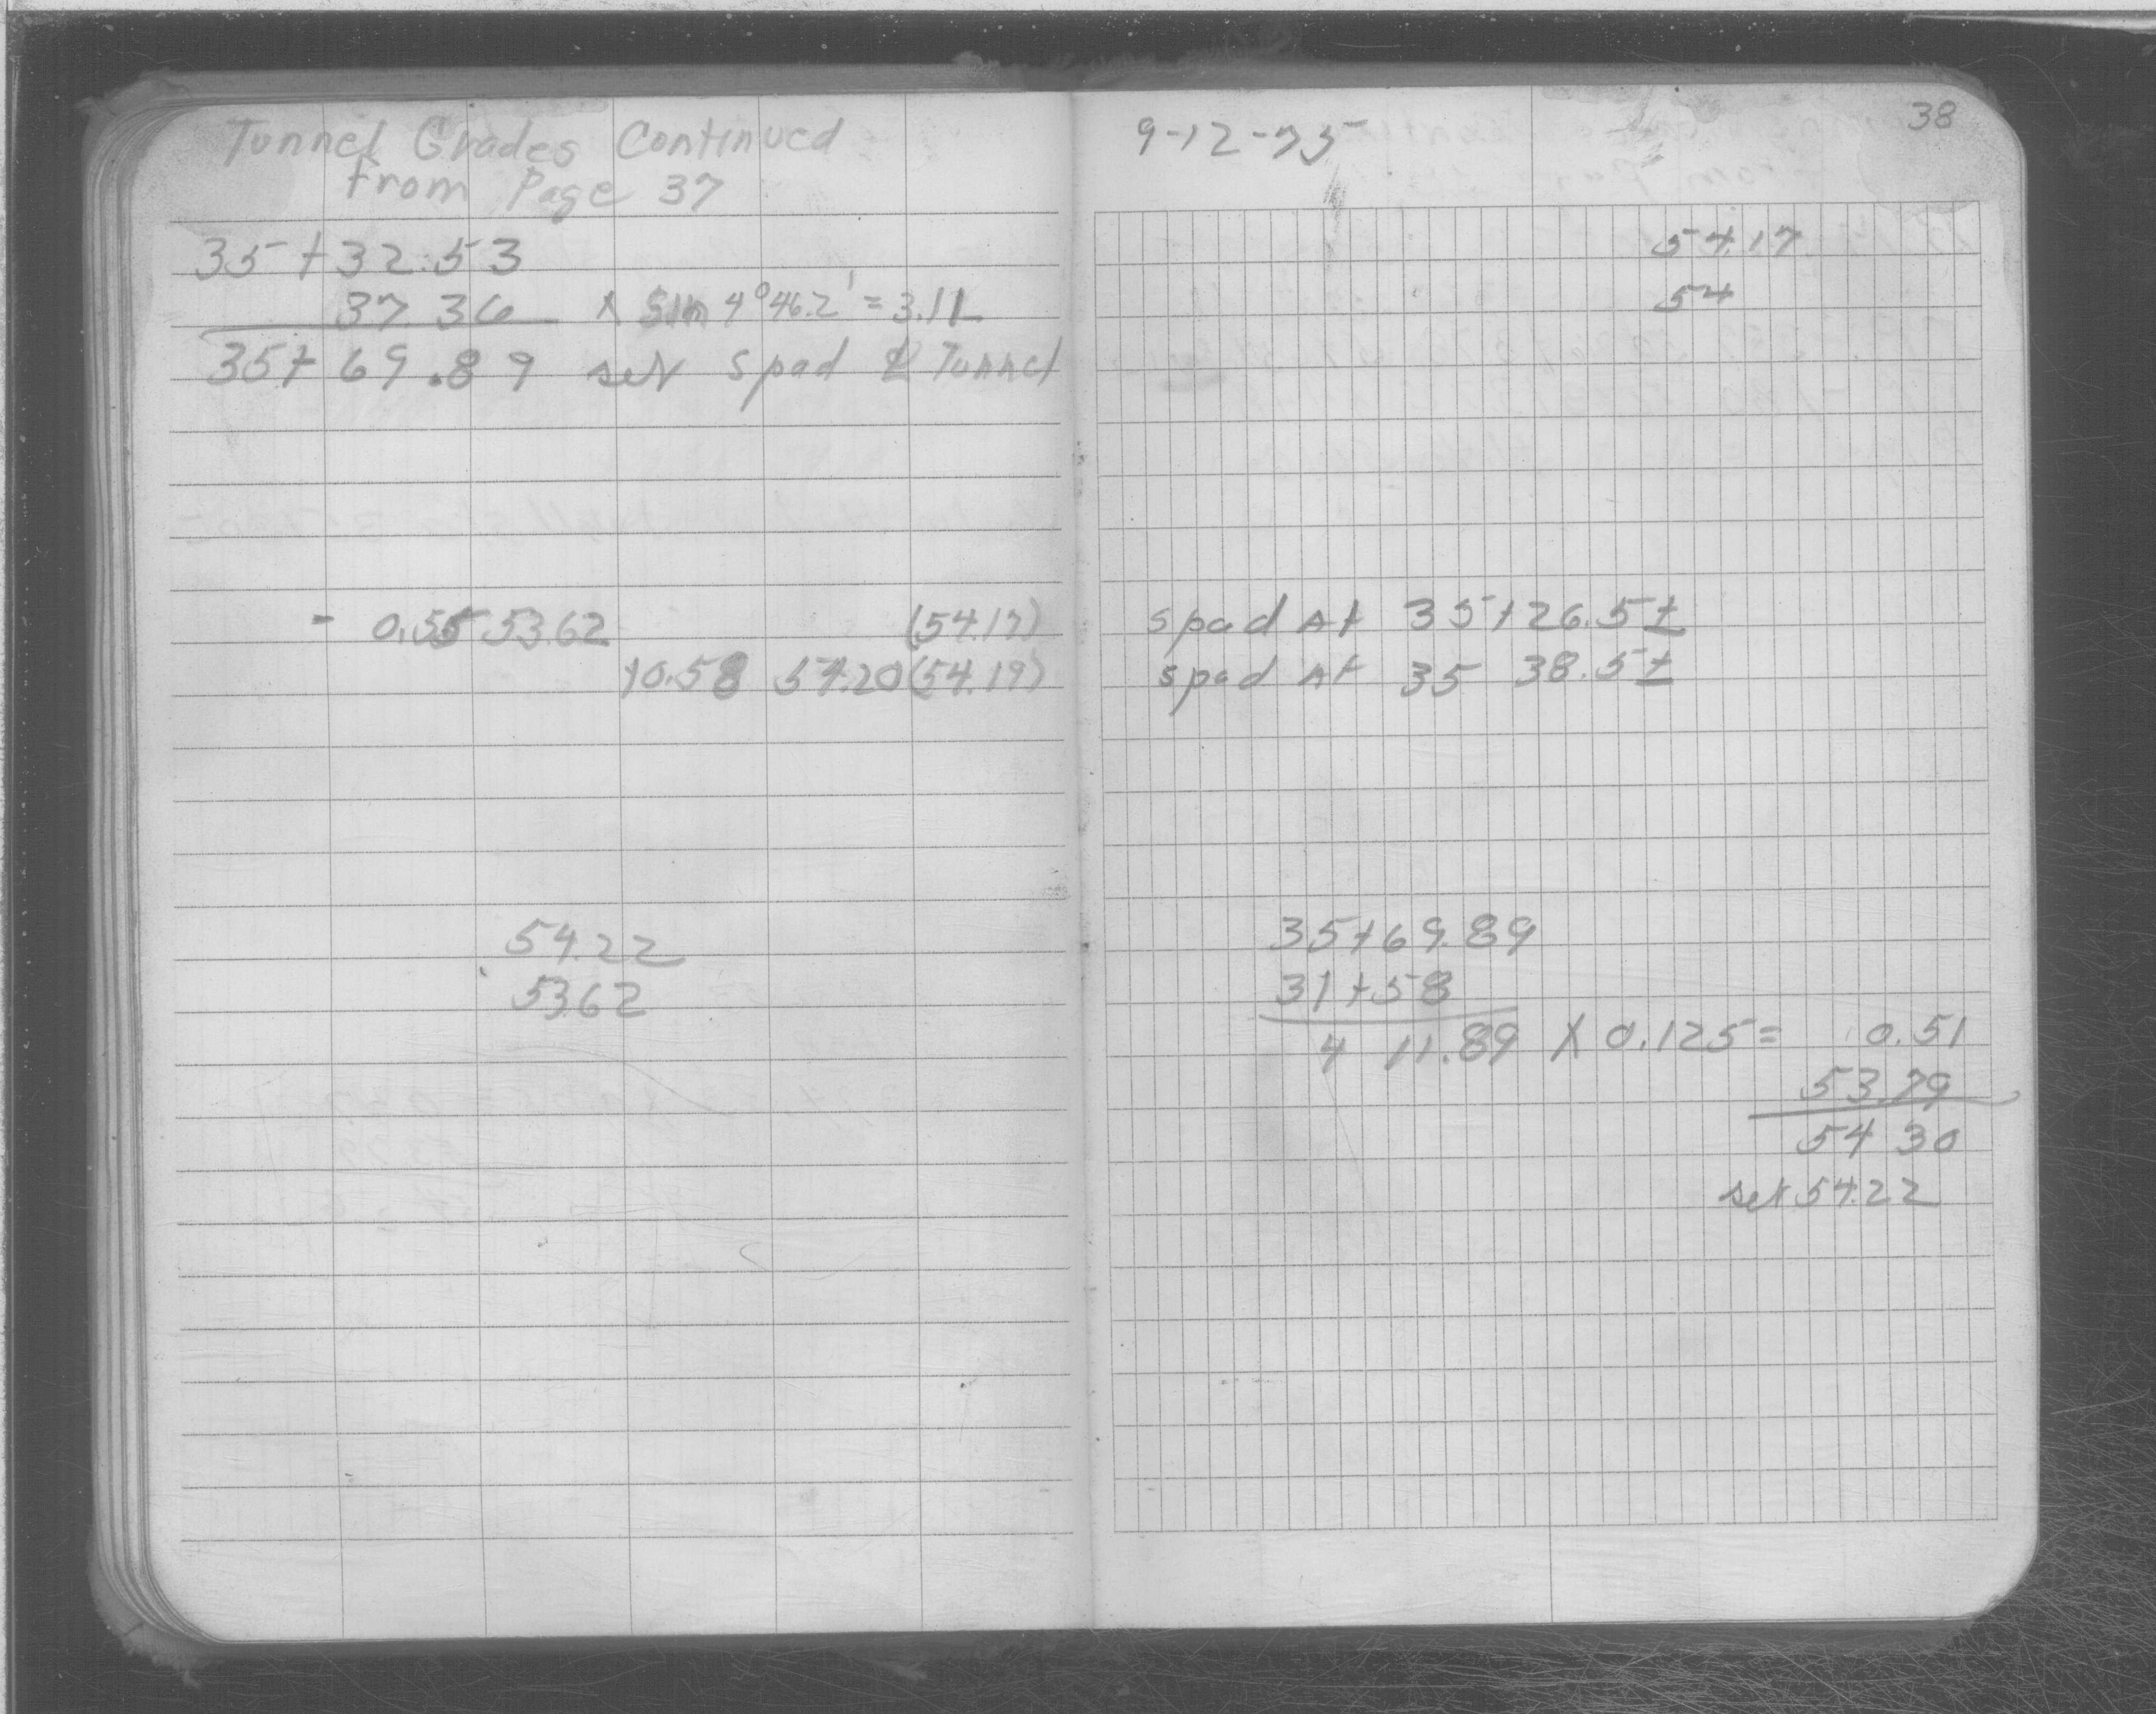 Tunnel Grades Continued
From Page 37
35+32.53
37.36 x Sin 4°46.2' = 3.11
35+69.89 set spad ℄ Tunnel
- 0.55 53.62 (54.17)
+0.58 54.20 (54.19)
54.22
53.62
9-12-75
38
54.17
54
spad At 35+26.5±
spad At 35 38.5±
35+69.89
31+58
4 11.89 X 0.125= 0.51
53.79
54 30
set 54.22